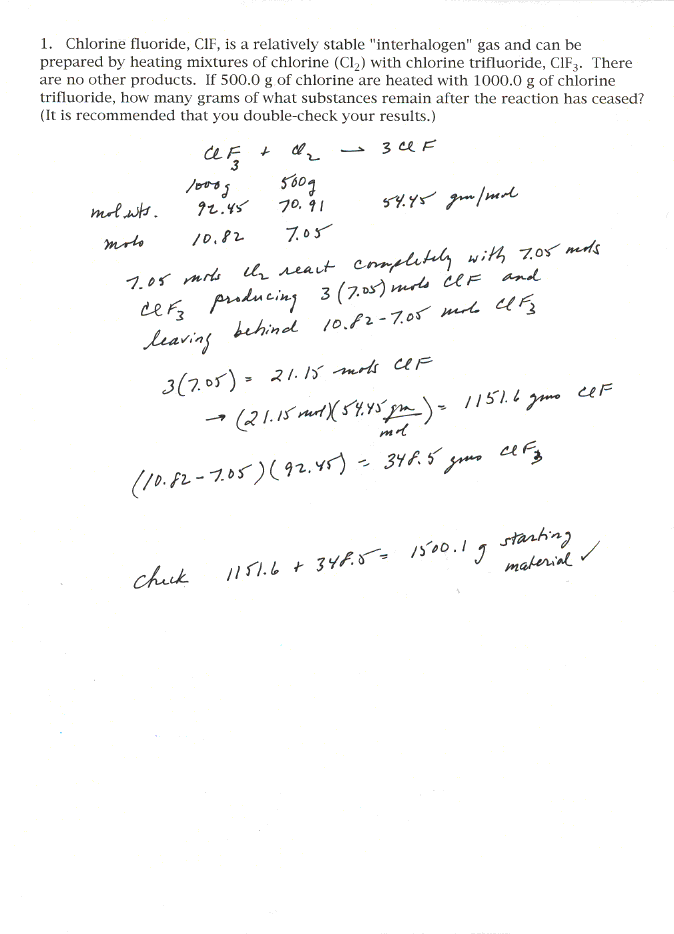 1. Chlorine fluoride, ClF, is a relatively stable "interhalogen" gas and can be
prepared by heating mixtures of chlorine (Cl₂) with chlorine trifluoride, ClF₃. There
are no other products. If 500.0 g of chlorine are heated with 1000.0 g of chlorine
trifluoride, how many grams of what substances remain after the reaction has ceased?
(It is recommended that you double-check your results.)
ClF₃ + Cl₂ → 3 ClF
1000g 500g
mol wts. 92.45 70.91 54.45 gm/mol
mols 10.82 7.05
7.05 mols Cl₂ react completely with 7.05 mols
ClF₃ producing 3(7.05) mols ClF and
leaving behind 10.82-7.05 mols ClF₃
3(7.05) = 21.15 mols ClF
→ (21.15 mol)(54.45 gm/mol) = 1151.6 gms ClF
(10.82-7.05)(92.45) = 348.5 gms ClF₃
Check 1151.6 + 348.5 = 1500.1 g starting
material ✓